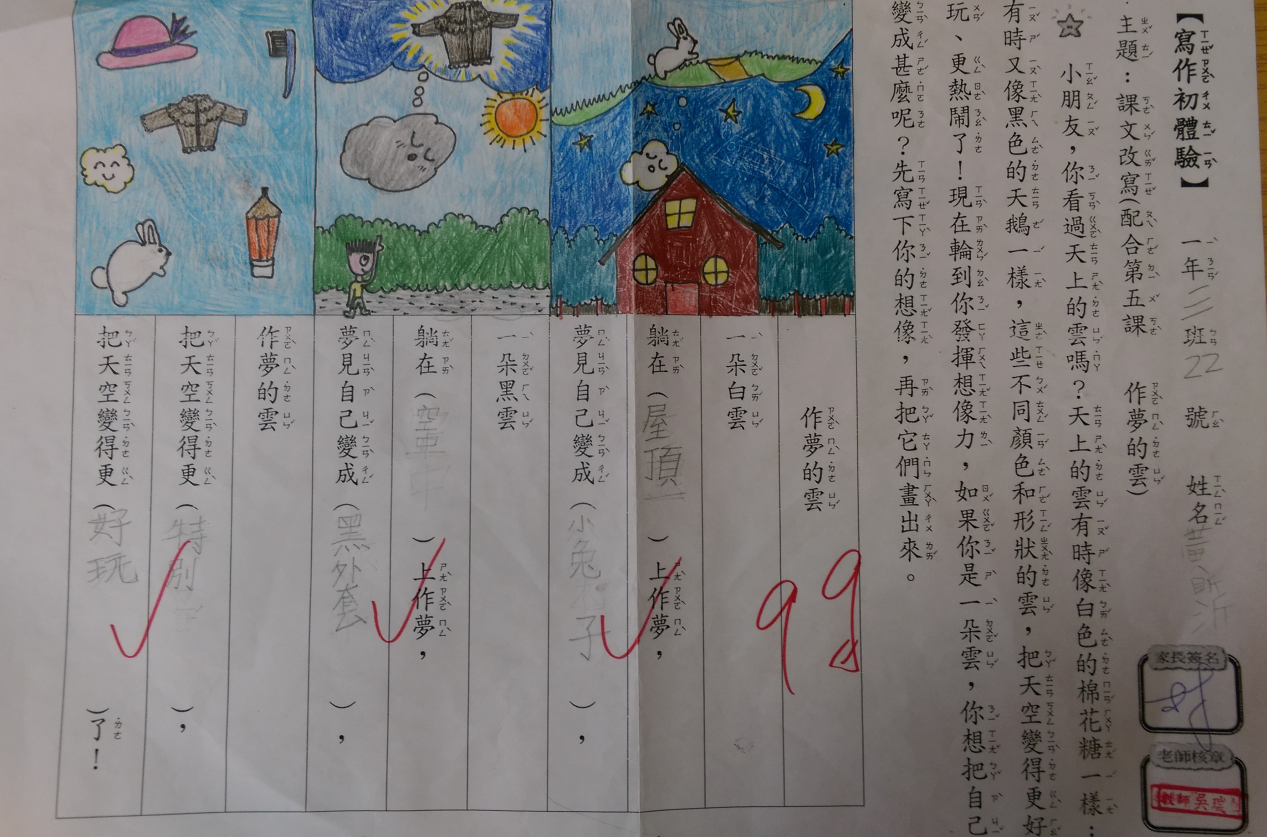 【寫作初體驗】 一年三班22號 姓名黃
主題：課文改寫(配合第五課 作夢的雲)
小朋友，你看過天上的雲嗎？天上的雲有時像白色的棉花糖一樣；
有時又像黑色的天鵝一樣，這些不同顏色和形狀的雲，把天空變得更好
玩、更熱鬧了！現在輪到你發揮想像力，如果你是一朵雲，你想把自己
變成甚麼呢？先寫下你的想像，再把它們畫出來。
家長簽名
老師核章
教師吳
99
作夢的雲
一朵白雲
躺在（屋頂）上作夢，
夢見自己變成（小兔子），
一朵黑雲
躺在（空中）上作夢，
夢見自己變成（黑外套），
作夢的雲
把天空變得更（特別），
把天空變得更（好玩）了！